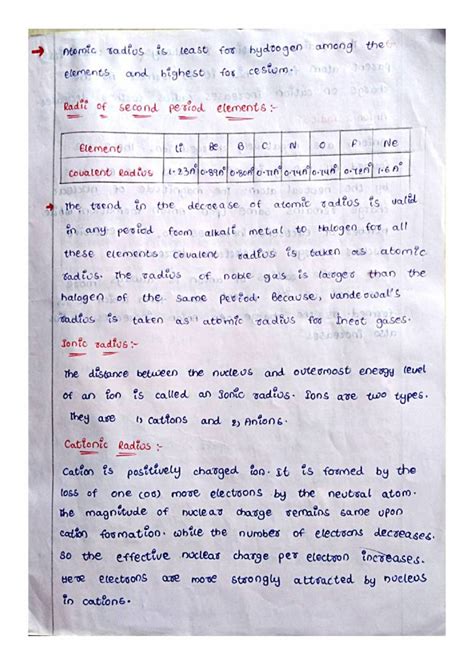 → Atomic radius is least for hydrogen among the
elements, and highest for cesium.
Radii of second period elements :-
Element Li Be B C N O F Ne
Covalent Radius 1.23A° 0.89A° 0.80A° 0.77A° 0.74A° 0.74A° 0.72A° 1.6A°
→ The trend in the decrease of atomic radius is valid
in any period from alkali metal to Halogen for all
these elements covalent radius is taken as atomic
radius. The radius of noble gas is larger than the
halogen of the same period. Because, vanderwal's
radius is taken as atomic radius for Inert gases.
Ionic radius :-
The distance between the nucleus and outermost energy level
of an ion is called an Ionic radius. Ions are two types.
They are 1) Cations and 2) Anions.
Cationic Radius :-
Cation is positively charged ion. It is formed by the
loss of one (or) more electrons by the neutral atom.
The magnitude of nuclear charge remains same upon
cation formation. while the number of electrons decreases.
So the effective nuclear charge per electron increases.
Here electrons are more strongly attracted by nucleus
in cations.